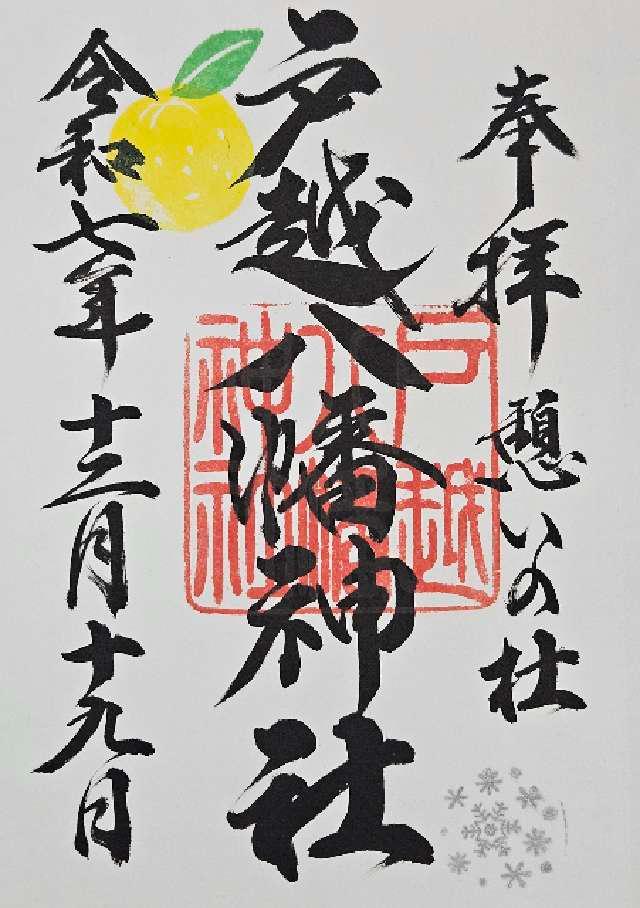 奉拝 憩いの杜
戸越八幡神社
戸越八幡神社
令和七年十二月十九日